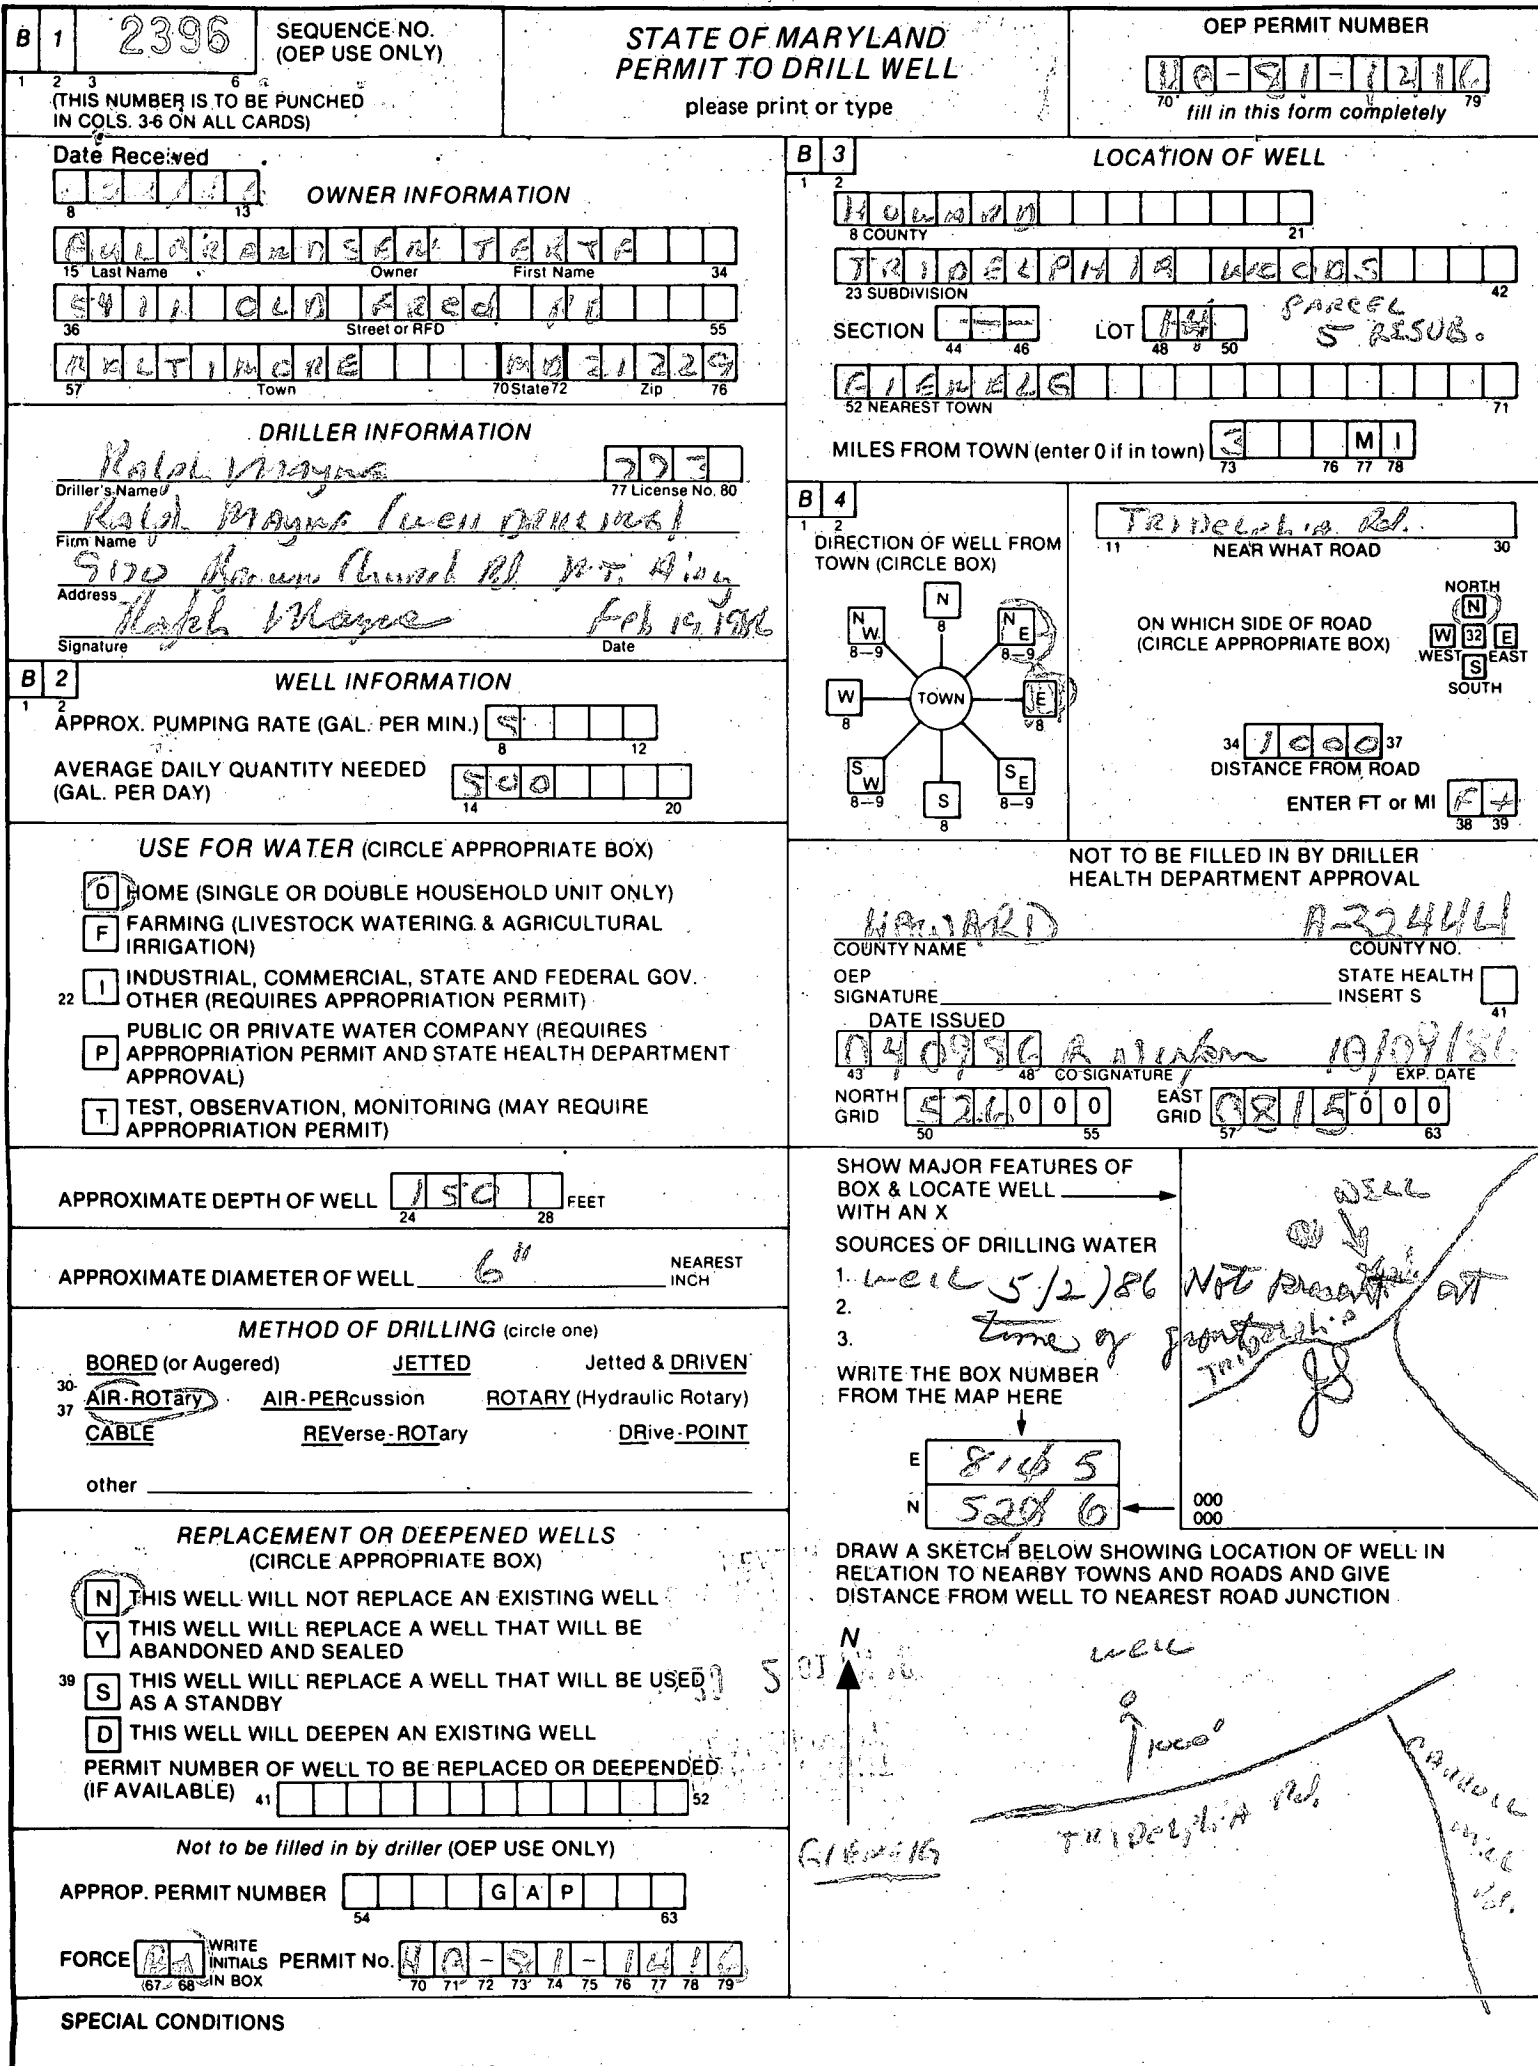 B 1 2396 SEQUENCE NO. (OEP USE ONLY)
1 2 3 6
(THIS NUMBER IS TO BE PUNCHED
IN COLS. 3-6 ON ALL CARDS)
STATE OF MARYLAND
PERMIT TO DRILL WELL
please print or type
OEP PERMIT NUMBER
70 79
fill in this form completely
Date Received
8 13
OWNER INFORMATION
15 Last Name Owner First Name 34
5411 OLD FRED RD
36 Street or RFD 55
BALTIMORE MD 21229
57 Town 70 State 72 Zip 76
DRILLER INFORMATION
Ralph Mayne 273
Driller's Name 77 License No. 80
Ralph Mayne (well drilling)
Firm Name
9120 Church Rd. Mt. Airy
Address
Ralph Mayne Feb 19, 1986
Signature Date
B 2 WELL INFORMATION
1 2
APPROX. PUMPING RATE (GAL. PER MIN.) 5
8 12
AVERAGE DAILY QUANTITY NEEDED
(GAL. PER DAY) 500
14 20
USE FOR WATER (CIRCLE APPROPRIATE BOX)
D HOME (SINGLE OR DOUBLE HOUSEHOLD UNIT ONLY)
F FARMING (LIVESTOCK WATERING & AGRICULTURAL
IRRIGATION)
22 I INDUSTRIAL, COMMERCIAL, STATE AND FEDERAL GOV.
OTHER (REQUIRES APPROPRIATION PERMIT)
P PUBLIC OR PRIVATE WATER COMPANY (REQUIRES
APPROPRIATION PERMIT AND STATE HEALTH DEPARTMENT
APPROVAL)
T TEST, OBSERVATION, MONITORING (MAY REQUIRE
APPROPRIATION PERMIT)
APPROXIMATE DEPTH OF WELL 150 FEET
24 28
APPROXIMATE DIAMETER OF WELL 6" NEAREST INCH
METHOD OF DRILLING (circle one)
BORED (or Augered) JETTED Jetted & DRIVEN
30-37 AIR-ROTary AIR-PERcussion ROTARY (Hydraulic Rotary)
CABLE REVerse-ROTary DRive-POINT
other
REPLACEMENT OR DEEPENED WELLS
(CIRCLE APPROPRIATE BOX)
N THIS WELL WILL NOT REPLACE AN EXISTING WELL
Y THIS WELL WILL REPLACE A WELL THAT WILL BE
ABANDONED AND SEALED
39 S THIS WELL WILL REPLACE A WELL THAT WILL BE USED
AS A STANDBY
D THIS WELL WILL DEEPEN AN EXISTING WELL
PERMIT NUMBER OF WELL TO BE REPLACED OR DEEPENED
(IF AVAILABLE) 41 52
Not to be filled in by driller (OEP USE ONLY)
APPROP. PERMIT NUMBER GAP
54 63
FORCE WRITE INITIALS IN BOX PERMIT No. HO-81-1416
67 68 70 71 72 73 74 75 76 77 78 79
SPECIAL CONDITIONS
B 3 LOCATION OF WELL
1 2
HOWARD
8 COUNTY 21
TRIDELPHIA WOODS
23 SUBDIVISION 42
SECTION --- LOT 14 PARCEL
44 46 48 50 5 RESUB.
GLENELG
52 NEAREST TOWN 71
MILES FROM TOWN (enter 0 if in town) 3 MI
73 76 77 78
B 4
1 2
DIRECTION OF WELL FROM
TOWN (CIRCLE BOX)
N 8
NW 8-9 NE 8-9
W 8 TOWN E 8
SW 8-9 SE 8-9
S 8
TRIDELPHIA Rd.
11 NEAR WHAT ROAD 30
ON WHICH SIDE OF ROAD
(CIRCLE APPROPRIATE BOX)
NORTH
N
W 32 E
WEST EAST
S
SOUTH
34 1000 37
DISTANCE FROM ROAD
ENTER FT or MI Ft
38 39
NOT TO BE FILLED IN BY DRILLER
HEALTH DEPARTMENT APPROVAL
HOWARD A-32444
COUNTY NAME COUNTY NO.
OEP SIGNATURE STATE HEALTH INSERT S
41
DATE ISSUED
040986 10/09/86
43 48 CO SIGNATURE EXP. DATE
NORTH GRID 526000 EAST GRID 0815000
50 55 57 63
SHOW MAJOR FEATURES OF
BOX & LOCATE WELL
WITH AN X
SOURCES OF DRILLING WATER
1. well 5/2/86 Not present at
2.
3. time of grout JS
WELL
Tridelphia
WRITE THE BOX NUMBER
FROM THE MAP HERE
E 815
N 526
000
000
DRAW A SKETCH BELOW SHOWING LOCATION OF WELL IN
RELATION TO NEARBY TOWNS AND ROADS AND GIVE
DISTANCE FROM WELL TO NEAREST ROAD JUNCTION
N
well
1000'
TRIDELPHIA Rd.
GLENELG
CARROLL
MILL
Rd.